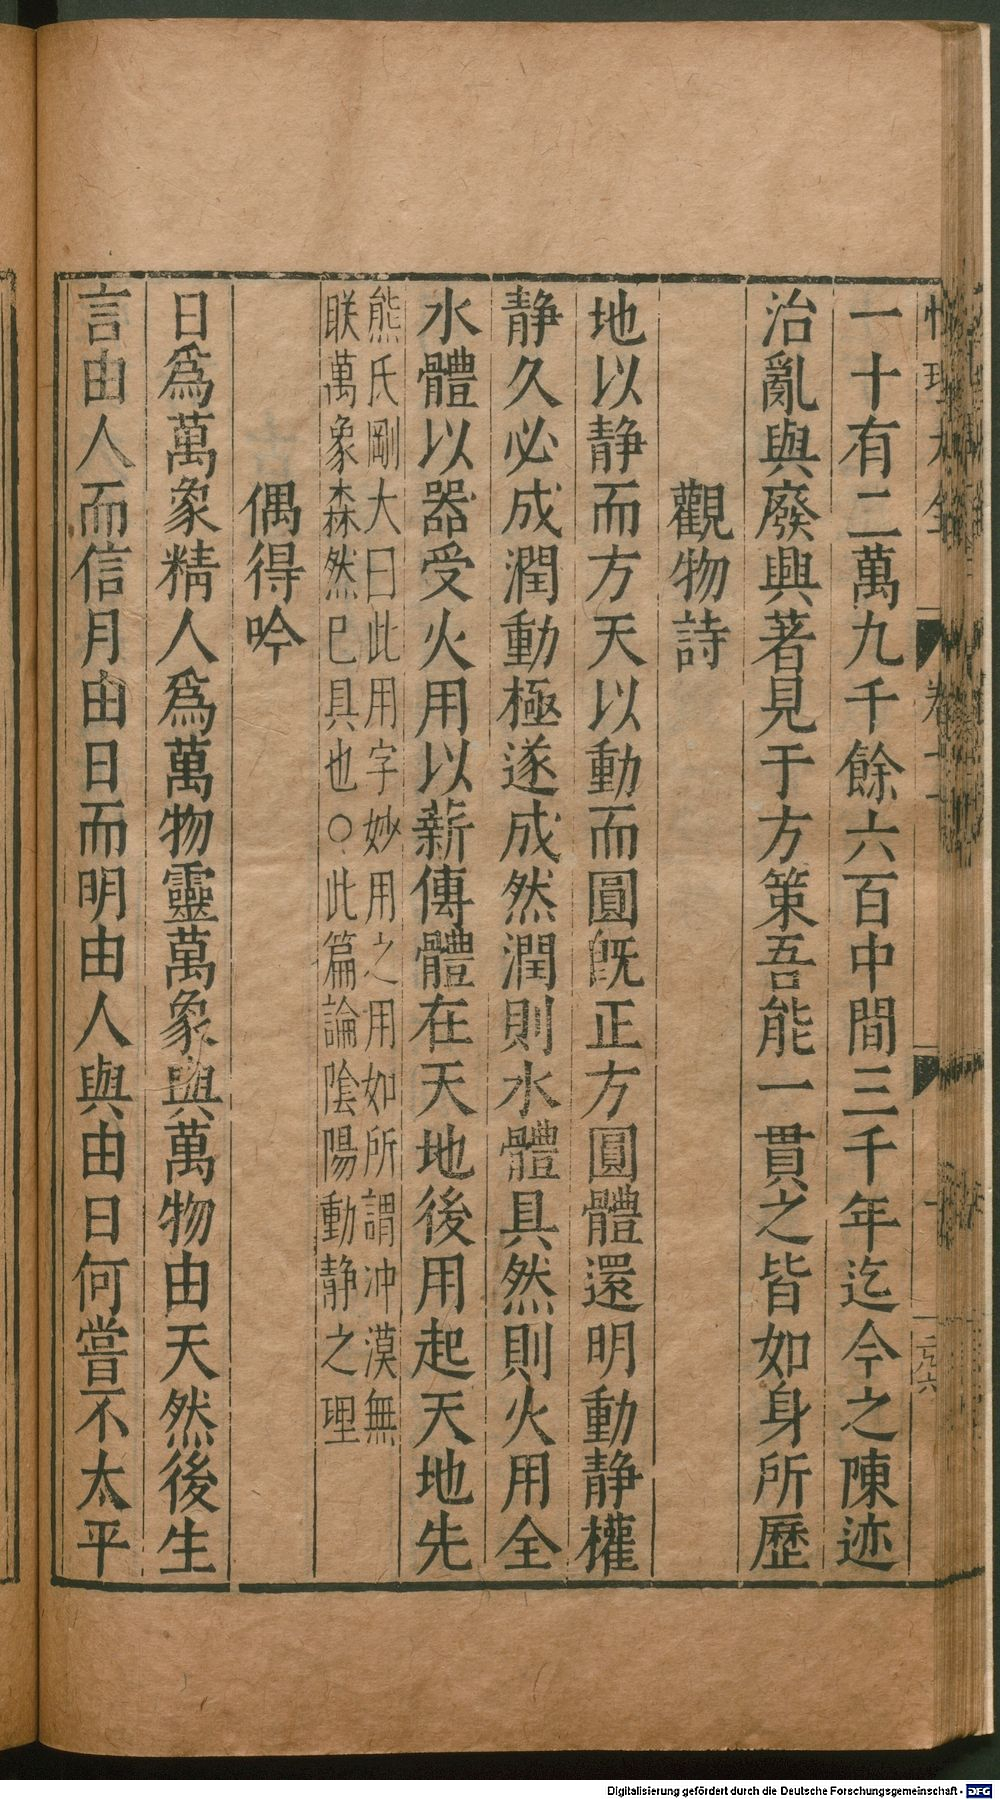 性理大全 卷七十 六
一十有二萬九千餘六百中間三千年迄今之陳迹
治亂與廢興著見于方策吾能一貫之皆如身所歷
觀物詩
地以静而方天以動而圓旣正方圓體還明動静權
静久必成潤動極遂成然潤則水體具然則火用全
水體以器受火用以薪傳體在天地後用起天地先
熊氏剛大曰此用字妙用之用如所謂冲漠無
眹萬象森然已具也○此篇論陰陽動静之理
偶得吟
日爲萬象精人爲萬物靈萬象與萬物由天然後生
言由人而信月由日而明由人與由日何嘗不太平
Digitalisierung gefördert durch die Deutsche Forschungsgemeinschaft - DFG